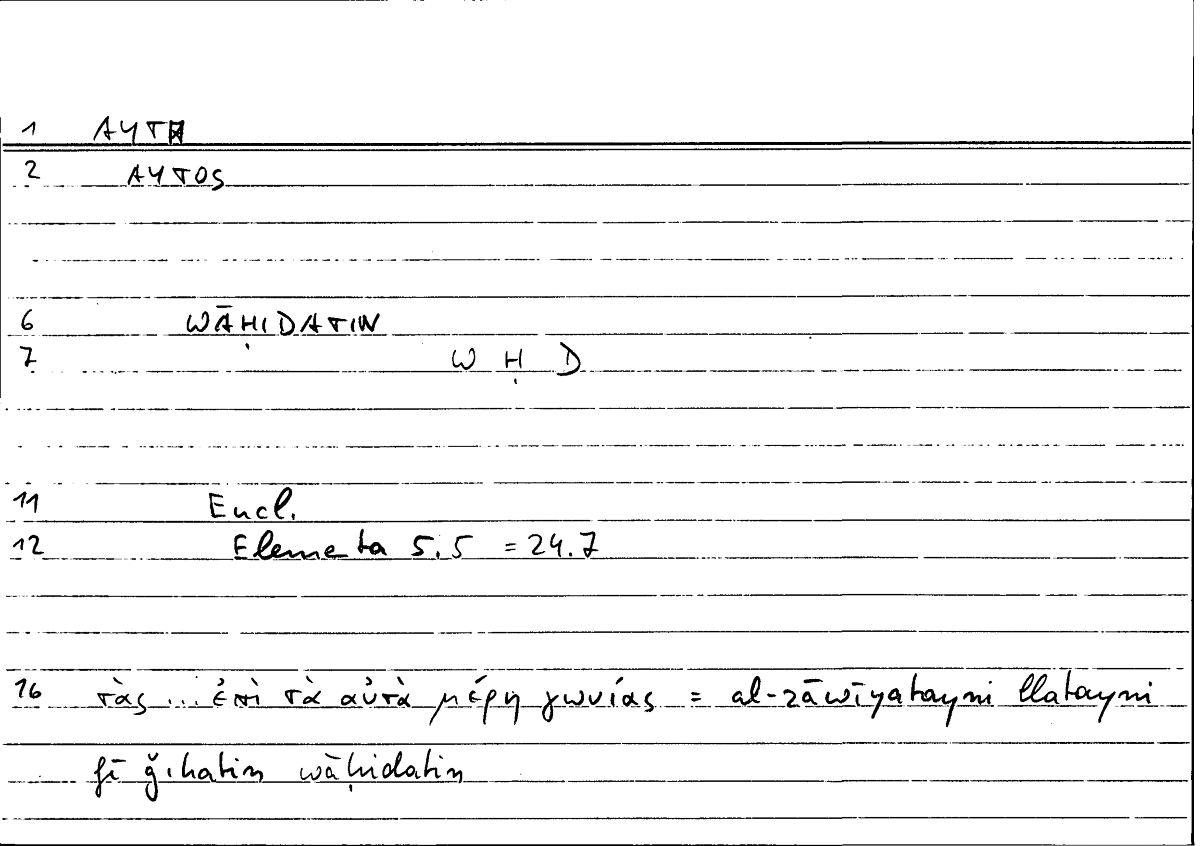 1 AYT
2 AYTOS
6 WĀḤIDATIN
7 W Ḥ D
11 Eucl.
12 Elementa 5.5 = 24.7
16 τὰς ... ἐπὶ τὰ αὐτὰ μέρη γωνίας = al-zāwīyatayni llatayni
fī ǧihatin wāḥidatin